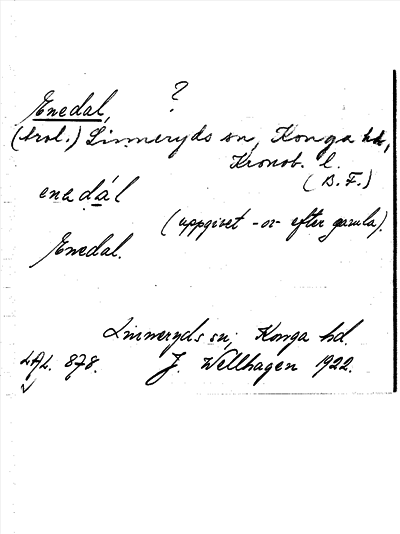 ?
Enedal,
(trol.) Linneryds sn, Konga hd,
Kronob. l.
(B.F.)
enadál
(uppgivet -or efter gamla).
Enedal.
Linneryds sn; Konga hd.
LAL. 878. J. Wellhagen 1922.